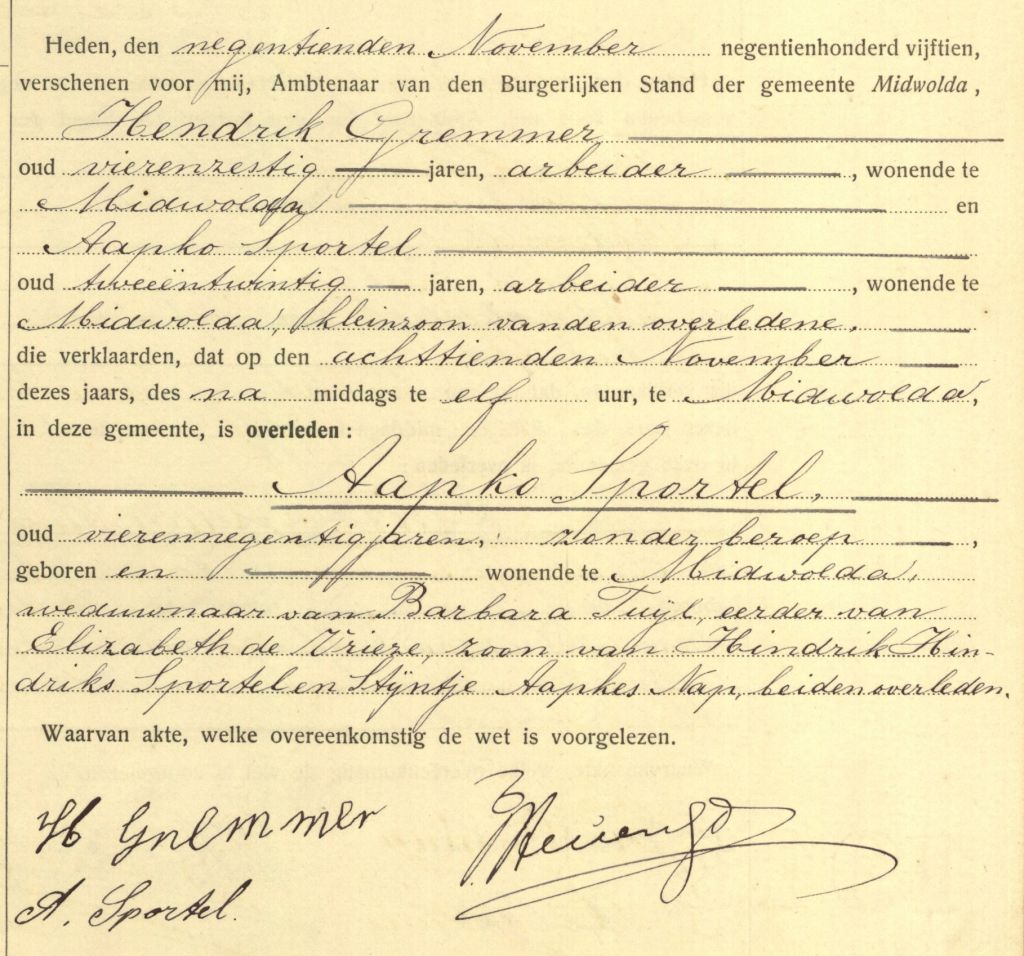 Heden, den negentienden November negentienhonderd vijftien,
verschenen voor mij, Ambtenaar van den Burgerlijken Stand der gemeente Midwolda,
Hendrik Gremmer
oud vierenzestig jaren, arbeider, wonende te
Midwolda en
Aapko Sportel
oud tweeëntwintig jaren, arbeider, wonende te
Midwolda, kleinzoon vanden overledene.
die verklaarden, dat op den achttienden November
dezes jaars, des na middags te elf uur, te Midwolda,
in deze gemeente, is overleden:
Aapko Sportel,
oud vierennegentig jaren, zonder beroep,
geboren en wonende te Midwolda,
weduwnaar van Barbara Tuijl, eerder van
Elizabeth de Vrieze, zoon van Hindrik Hin-
driks Sportel en Stijntje Aapkes Nap, beiden overleden.
Waarvan akte, welke overeenkomstig de wet is voorgelezen.
H Gremmer
A. Sportel.